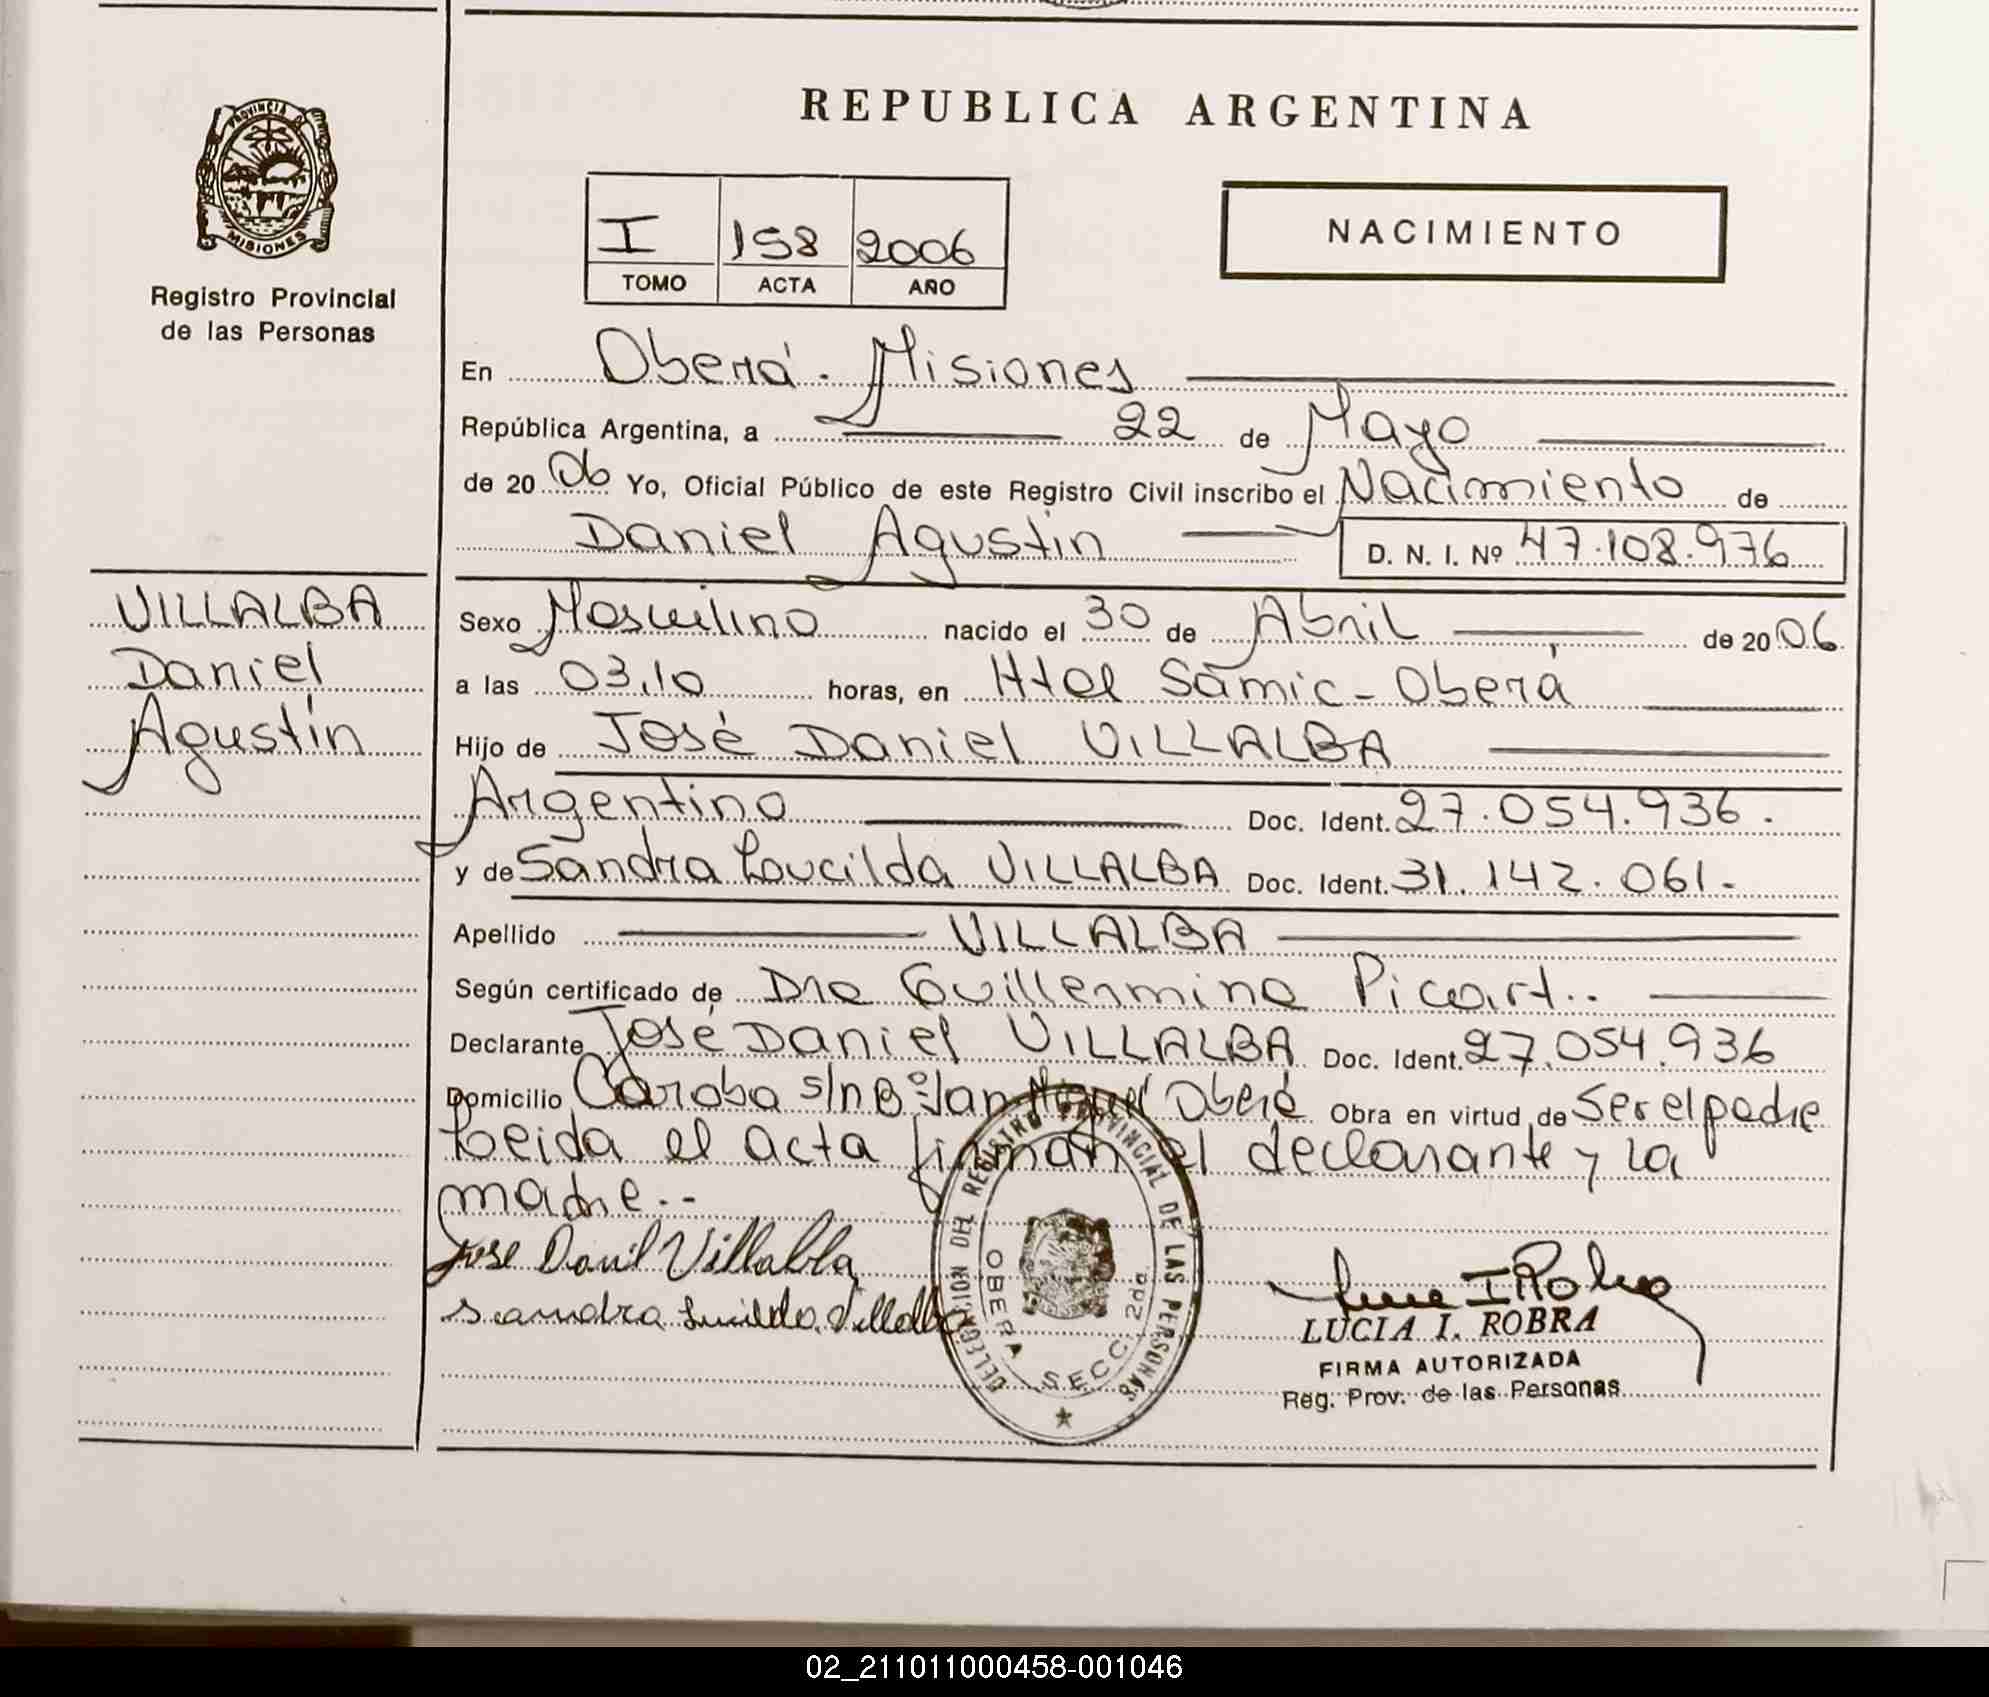 REPUBLICA ARGENTINA
PROVINCIA DE MISIONES
Registro Provincial
de las Personas
I 158 2006
TOMO ACTA AÑO
NACIMIENTO
En Oberá - Misiones
República Argentina, a 22 de Mayo
de 2006 Yo, Oficial Público de este Registro Civil inscribo el Nacimiento de
Daniel Agustin D. N. I. Nº 47.108.976
VILLALBA
Daniel
Agustín
Sexo Masculino nacido el 30 de Abril de 2006
a las 03,10 horas, en Htal Sámic - Oberá
Hijo de José Daniel VILLALBA
Argentino Doc. Ident. 27.054.936.
y de Sandra Loucilda VILLALBA Doc. Ident. 31.142.061.-
Apellido VILLALBA
Según certificado de Dra Guillermina Picart..
Declarante José Daniel VILLALBA Doc. Ident. 27.054.936
Domicilio Caroba s/n Bº San Miguel Oberá Obra en virtud de Ser el padre
Leida el acta firman el declarante y la
madre.--
Jose Danil Villalba
Sandra Lucilda Villalba
DELEGACION DEL REGISTRO PROVINCIAL DE LAS PERSONAS
OBERA SECC. 2da
LUCIA I. ROBRA
FIRMA AUTORIZADA
Reg. Prov. de las Personas
02_211011000458-001046